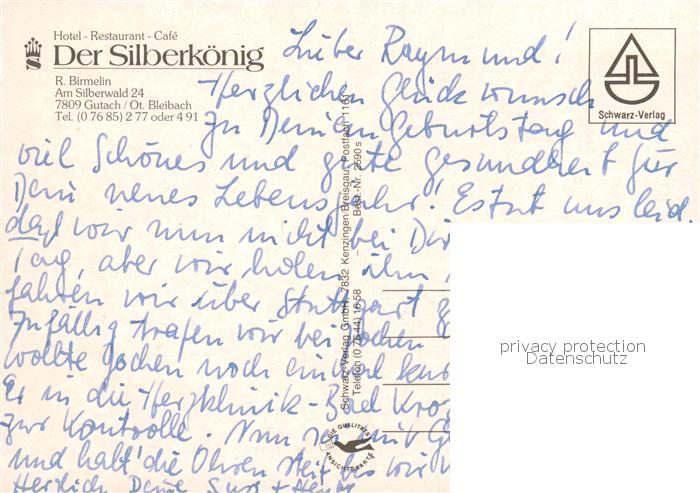 Hotel - Restaurant - Café
Der Silberkönig
R. Birmelin
Am Silberwald 24
7809 Gutach / Ot. Bleibach
Tel. (0 76 85) 2 77 oder 4 91
Schwarz-Verlag
Lieber Raymund!
Herzlichen Glückwunsch
zu Deinem Geburtstag und
viel Schönes und gute Gesundheit für
Dein neues Lebensjahr! Es tut uns leid,
daß wir nun nicht bei Dir
Tag, aber wir holen ihn
fahren wir über Stuttgart
Zufällig trafen wir bei Jochen
wollte Jochen noch einmal
Er in die Herzklinik - Bad
zur Kontrolle. Nun
und halt' die Ohren steif bis wir
Herzlich Deine
Schwarz-Verlag GmbH, 7832 Kenzingen/Breisgau, Postfach 1161
Telefon (0 76 44) 16 58 Best.-Nr. 2590 s
DIE QUALITÄTS
ANSICHTSKARTE
privacy protection
Datenschutz